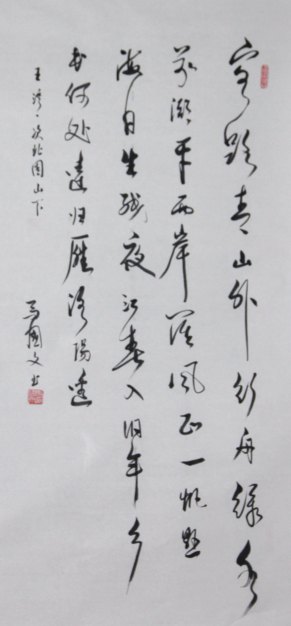 客路青山外行舟绿水
前潮平两岸阔风正一帆悬
海日生残夜江春入旧年乡
书何处達归雁洛陽邊
王湾·次北固山下
馬國文书